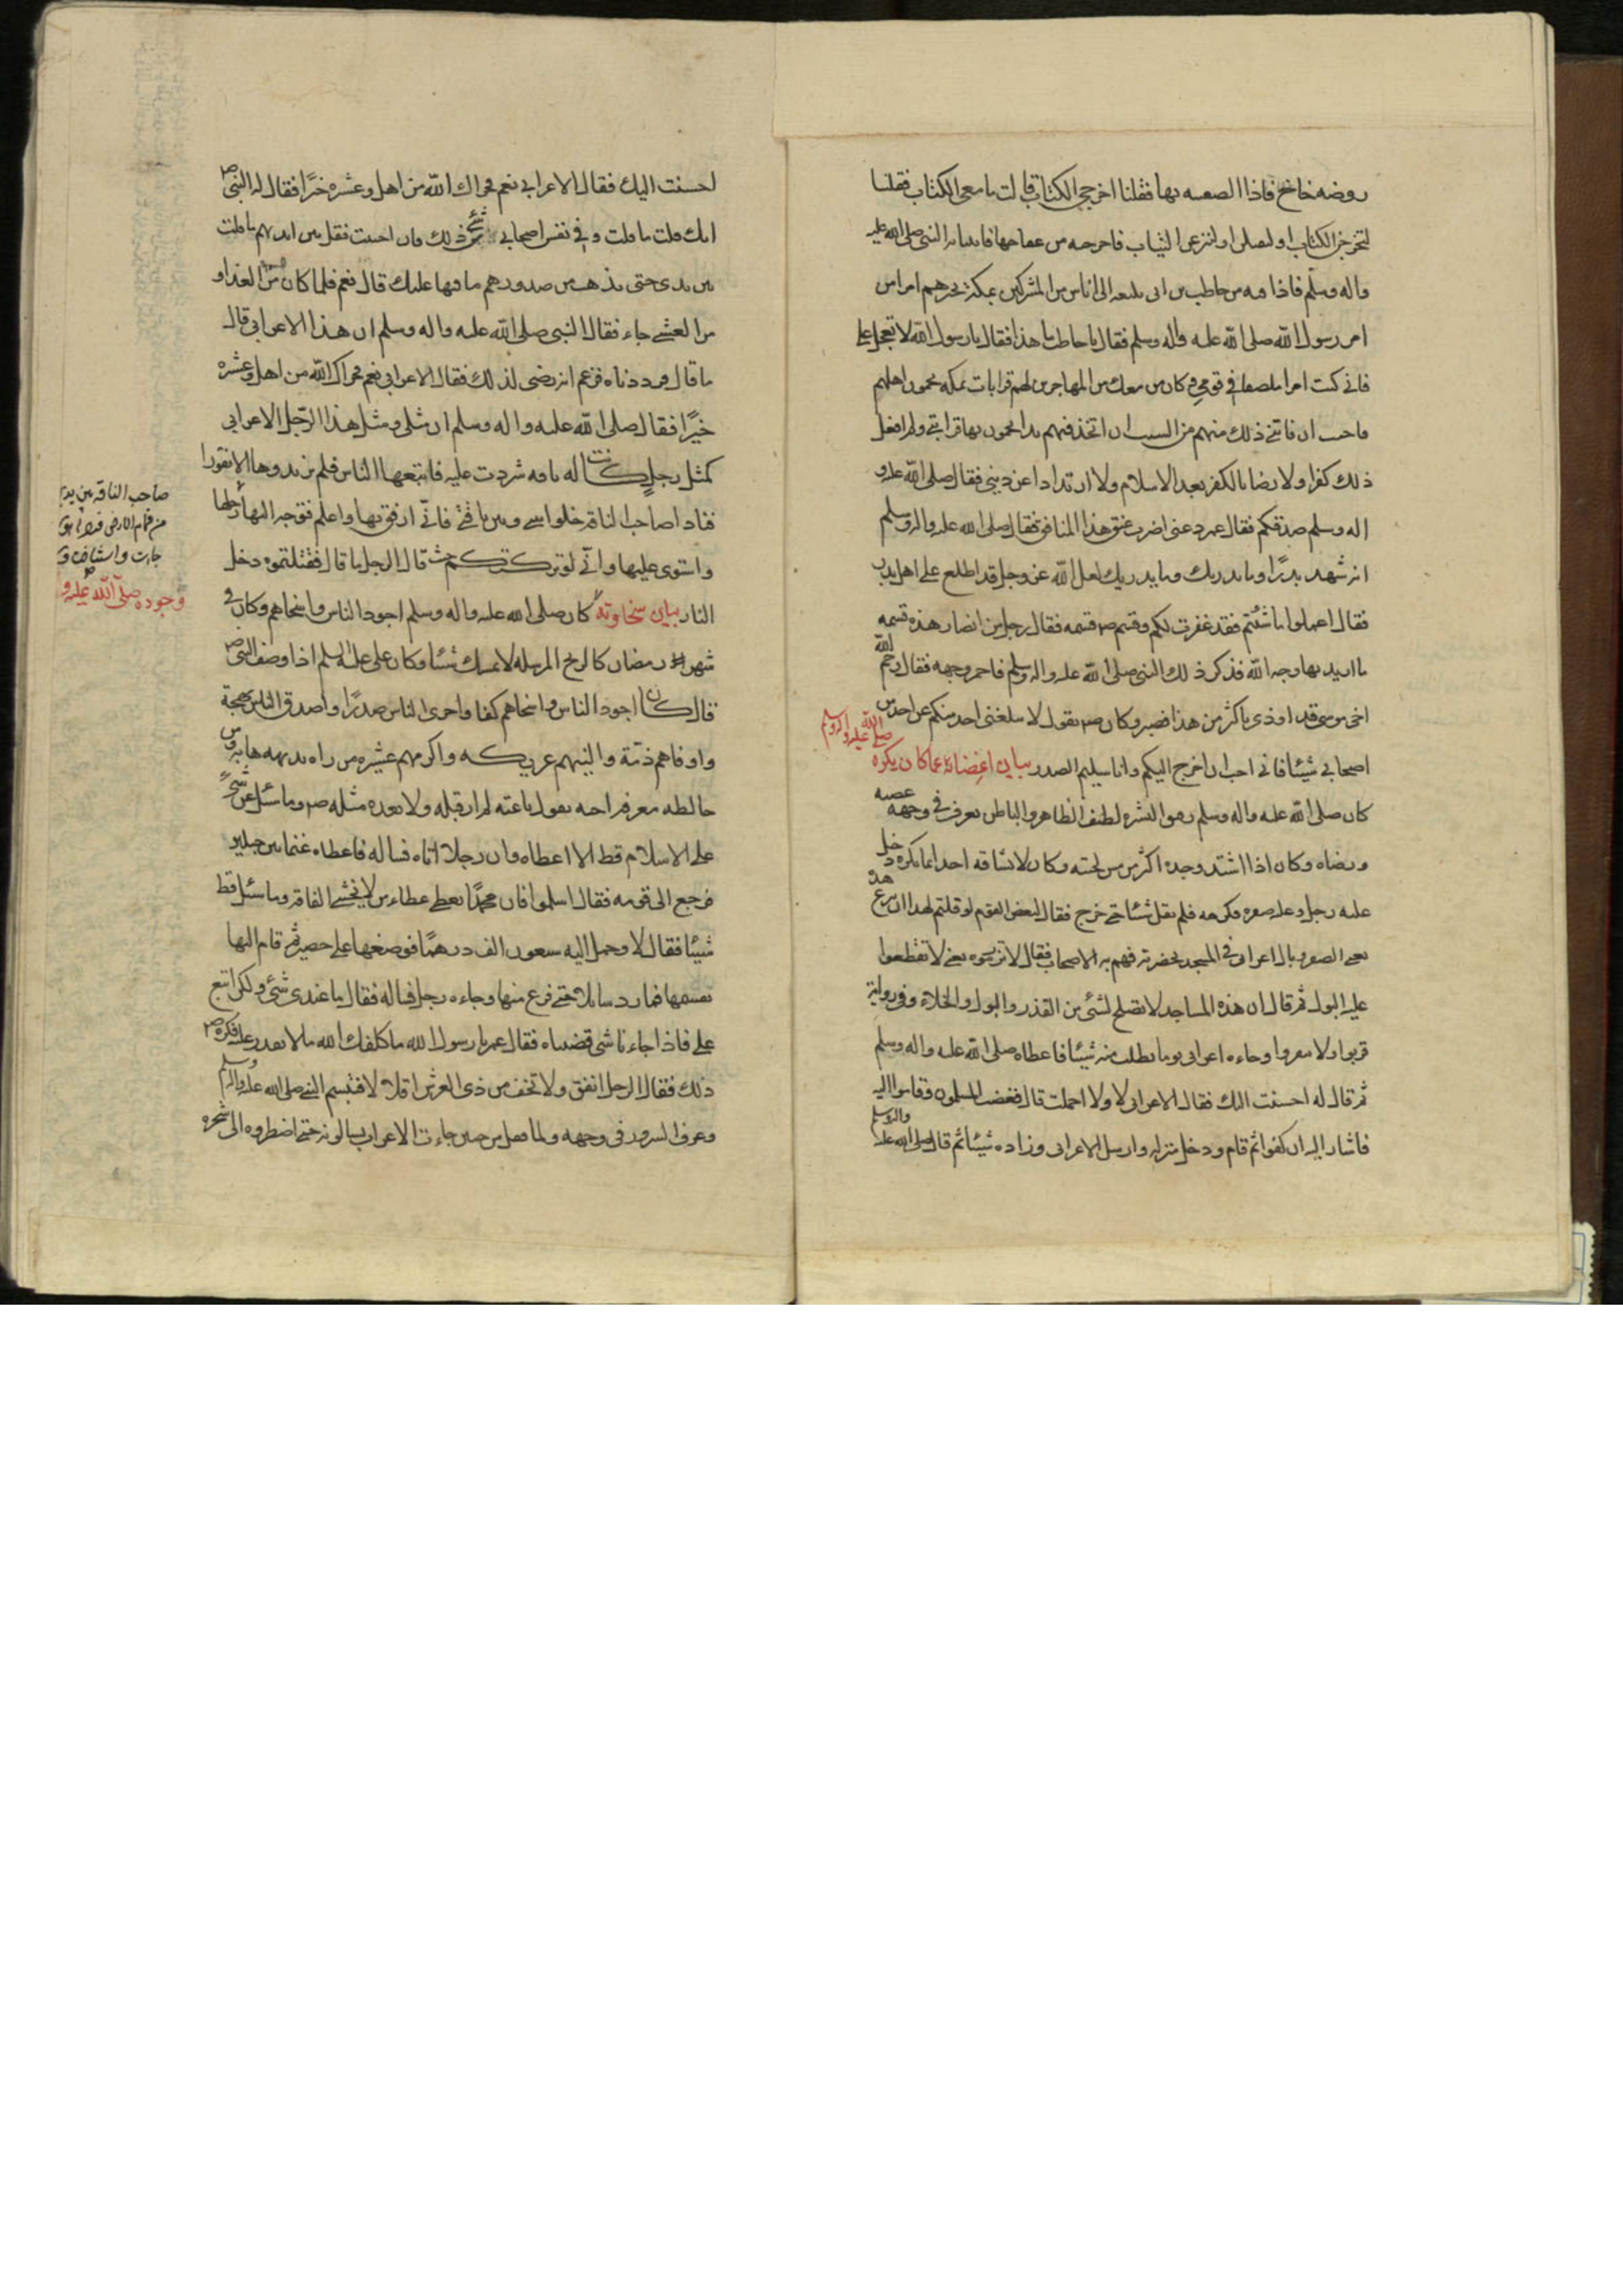 روضه خاخ فاذا الصعسه بها فقلنا اخرجى الكتاب قالت ما معى الكتاب فقلنا
لتخرجن الكتاب او لنصلن او لننزعن الثياب فاخرجه من عقاصها فاتينا به النبى صلى الله عليه
واله وسلم فاذا فيه من حاطب بن ابى بلتعه الى اناس من المشركين بمكة يخبرهم امرا من
امر رسول الله صلى الله عليه واله وسلم فقال يا حاطب ما هذا فقال يا رسول الله لا تعجل على
فانى كنت امرا ملصقا فى قومى وكان من معك من المهاجرين لهم قرابات بمكة يحمون اهليهم
فاحب ان فاتنى ذلك منهم من السب ان اتخذ فيهم يدا يحمون بها قرابتى ولم افعل
ذلك كفرا ولا رضا بالكفر بعد الاسلام ولا ارتدادا عن دينى فقال صلى الله عليه و
اله وسلم صدقكم فقال عمر دعنى اضرب عنق هذا المنافق فقال صلى الله عليه واله وسلم
انه شهد بدرا وما يدريك وما يدريك لعل الله عز وجل قد اطلع على اهل بدر
فقال اعملوا ما شئتم فقد غفرت لكم وقسم ص قسمه فقال رجل من انصار هذه قسمه
ما اريد بها وجه الله فذكر ذلك للنبى صلى الله عليه واله وسلم فاحمر وجهه فقال رحم الله
اخى موسى قد اوذى باكثر من هذا فصبر وكان ص يقول لا يبلغنى احد منكم عن احد من
اصحابى شيئا فانى احب ان اخرج اليكم وانا سليم الصدر بيان اغضائه عما كان يكره
صلى الله عليه واله وسلم
كان صلى الله عليه واله وسلم رقيق البشره لطيف الظاهر والباطن يعرف فى وجهه غضبه
ورضاه وكان اذا اشتد وجده اكثر من مس لحيته وكان لا يشافه احدا بما يكره دخل
عليه رجل وعليه صفره فكرهه فلم يقل شيئا حتى خرج فقال لبعض القوم لو قلتم لهذا ان يدع هذه
يعنى الصفره بال اعرابى فى المسجد بحضرته فهم به الاصحاب فقال لا تزرموه يعنى لا تقطعوا
عليه البول ثم قال ان هذه المساجد لا تصلح لشئ من القذر والبول والخلاء وفى رواية
قربوا ولا تنفروا وجاءه اعرابى يوما يطلب منه شيئا فاعطاه صلى الله عليه واله وسلم
ثم قال له احسنت اليك فقال الاعرابى لا ولا اجملت قال فغضب المسلمون وقاموا اليه
فاشار اليه ان كفوا ثم قام ودخل منزله وارسل الاعرابى وزاده شيئا ثم قال صلى الله عليه واله وسلم
احسنت اليك فقال الاعرابى نعم فجزاك الله من اهل وعشيره خيرا فقال له النبى ص
انك قلت ما قلت وفى نفس اصحابى شئ من ذلك فان احببت فقل بين ايديهم ما قلت
بين يدى حتى يذهب من صدورهم ما فيها عليك قال نعم فلما كان من الغد او
من العشى جاء فقال النبى صلى الله عليه واله وسلم ان هذا الاعرابى قال
ما قال فزدناه فزعم انه رضى لذلك فقال الاعرابى نعم فجزاك الله من اهل وعشيره
خيرا فقال صلى الله عليه واله وسلم ان مثلى ومثل هذا الرجل الاعرابى
كمثل رجل كانت له ناقه شردت عليه فاتبعها الناس فلم يزيدوها الا نفورا
فناداه صاحب الناقة خلوا بينى وبين ناقتى فانى ارفق بها واعلم فتوجه اليها
واستوى عليها وانى لو تركتكم حيث قال الرجل ما قال فقتلتموه دخل
النار بيان سخاوته كان صلى الله عليه واله وسلم اجود الناس واسخاهم وكان فى
شهر رمضان كالريح المرسله لا يمسك شيئا وكان على عليه السلم اذا وصف النبى ص
قال كان اجود الناس واسخاهم كفا واجرى الناس صدرا واصدق الناس لهجة
واوفاهم ذمة والينهم عريكه واكرمهم عشيره من راه بديهه هابه ومن
خالطه معرفه احبه يقول ناعته لم ار قبله ولا بعده مثله ص وما سئل عن شئ
على الاسلام قط الا اعطاه وان رجلا اتاه فساله فاعطاه غنما بين جبلين
فرجع الى قومه فقال اسلموا فان محمدا يعطى عطاء من لا يخشى الفاقه وما سئل قط
شيئا فقال لا وحمل اليه سبعون الف درهما فوضعها على حصير ثم قام اليها
يقسمها فما رد سائلا حتى فرغ منها وجاءه رجل فساله فقال ما عندى شئ ولكن اتبع
على فاذا جاءنا شى قضيناه فقال عمر يا رسول الله ما كلفك الله ما لا تقدر عليه فكره ص
ذلك فقال الرجل انفق ولا تخف من ذى العرش اقلالا فتبسم النبى صلى الله عليه واله وسلم
وعرف السرور فى وجهه ولما قفل من حنين جاءت الاعراب يسالونه حتى اضطروه الى شجره
صاحب الناقه بين يديها
من قمام الارض
جاءت واستناخت و
وجوده صلى الله عليه و